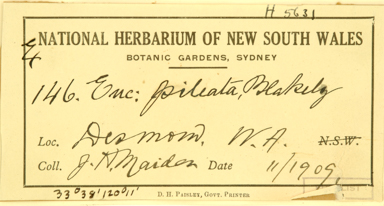 H 5631
Ex
NATIONAL HERBARIUM OF NEW SOUTH WALES
BOTANIC GARDENS, SYDNEY
146. Euc: pileata, Blakely
Loc. Desmond, W.A. N.S.W.
Coll. J. H. Maiden Date 11/1909.
33°38' 120°11'
D. H. PAISLEY, GOVT. PRINTER